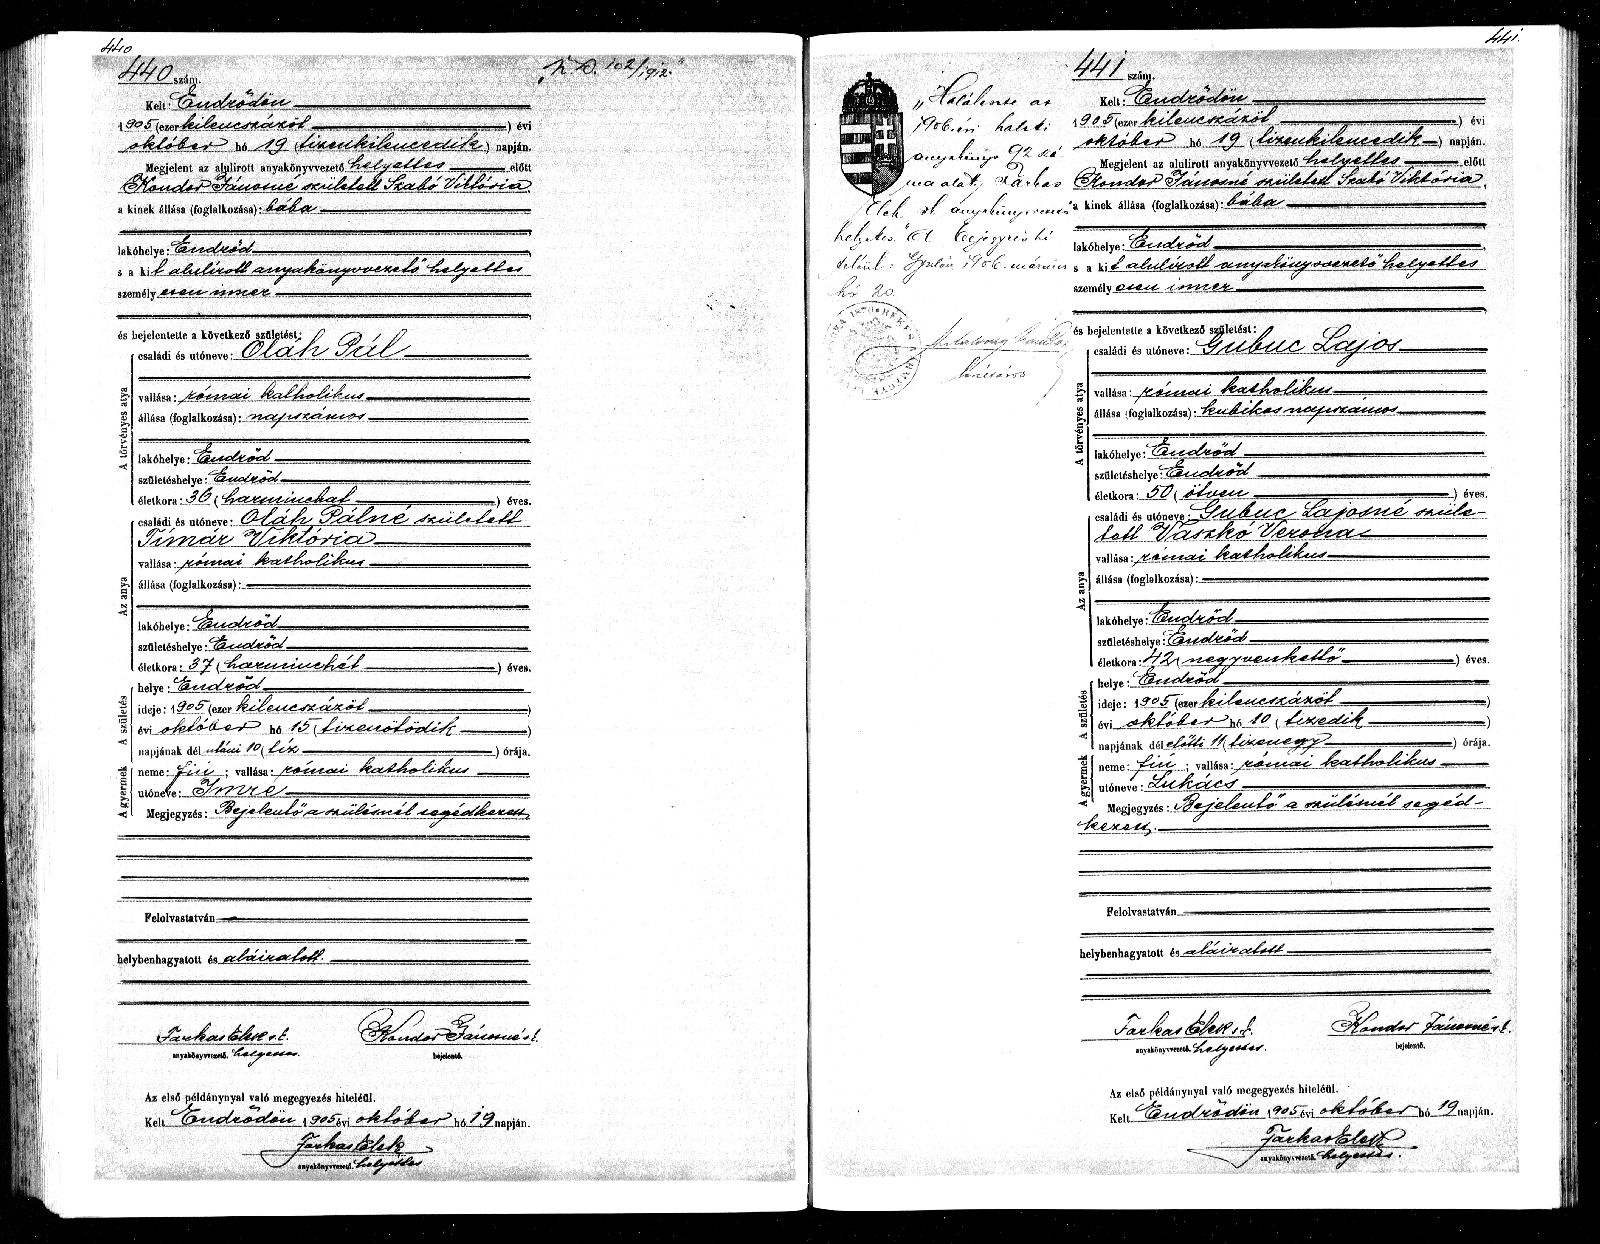 440
440 szám.
Kelt: Endrődön
1905 (ezer kilencszázöt) évi
október hó 19 (tizenkilencedik) napján.
Megjelent az alulirott anyakönyvvezető helyettes előtt
Kondor Jánosné született Szabó Viktória
a kinek állása (foglalkozása): bába
lakóhelye: Endrőd
s a kit alulírott anyakönyvvezető helyettes
személyesen ismer
és bejelentette a következő születést:
A törvényes atya
családi és utóneve: Oláh Pál
vallása: római katholikus
állása (foglalkozása): napszámos
lakóhelye: Endrőd
születéshelye: Endrőd
életkora: 36 (harminchat) éves.
Az anya
családi és utóneve: Oláh Pálné született
Tímár Viktória
vallása: római katholikus
állása (foglalkozása):
lakóhelye: Endrőd
születéshelye: Endrőd
életkora: 37 (harminchét) éves.
A születés
helye: Endrőd
ideje: 1905 (ezer kilencszázöt)
évi október hó 15 (tizenötödik)
napjának dél utáni 10 (tíz) órája.
A gyermek
neme: fiú; vallása: római katholikus
utóneve: Imre
Megjegyzés: Bejelentő a szülésnél segédkezett.
Felolvastatván
helybenhagyatott és aláiratott.
Farkas Elek s.k. Kondor Jánosné s.k.
anyakönyvvezető. helyettes. bejelentő.
Az első példánynyal való megegyezés hiteléül.
Kelt Endrődön 1905 évi október hó 19 napján.
Farkas Elek
anyakönyvvezető. helyettes
102/1912.
441.
441 szám.
"Halálesete az
1906. évi haláli
anyakönyv 92 szá
ma alatt, Farkas
Elek sk anyakönyvvezető
helyettes." A bejegyzés hi
teléül: Gyulán 1906. március
hó 20.
levéltáros
Kelt: Endrődön
1905 (ezer kilencszázöt) évi
október hó 19 (tizenkilencedik) napján.
Megjelent az alulirott anyakönyvvezető helyettes előtt
Kondor Jánosné született Szabó Viktória,
a kinek állása (foglalkozása): bába
lakóhelye: Endrőd
s a kit alulírott anyakönyvvezető helyettes
személyesen ismer
és bejelentette a következő születést:
A törvényes atya
családi és utóneve: Gubuc Lajos
vallása: római katholikus
állása (foglalkozása): kubikos napszámos
lakóhelye: Endrőd
születéshelye: Endrőd
életkora: 50 (ötven) éves.
Az anya
családi és utóneve: Gubuc Lajosné szüle-
tett Vaszkó Verona
vallása: római katholikus
állása (foglalkozása):
lakóhelye: Endrőd
születéshelye: Endrőd
életkora: 42 (negyvenkettő) éves.
A születés
helye: Endrőd
ideje: 1905 (ezer kilencszázöt)
évi október hó 10 (tizedik)
napjának dél előtti 11 (tizenegy) órája.
A gyermek
neme: fiú; vallása: római katholikus
utóneve: Lukács
Megjegyzés: Bejelentő a szülésnél segéd-
kezett.
Felolvastatván
helybenhagyatott és aláiratott
Farkas Elek s.k. Kondor Jánosné s.k.
anyakönyvvezető. helyettes. bejelentő.
Az első példánynyal való megegyezés hiteléül.
Kelt Endrődön 1905 évi október hó 19 napján.
Farkas Elek
anyakönyvvezető. helyettes.